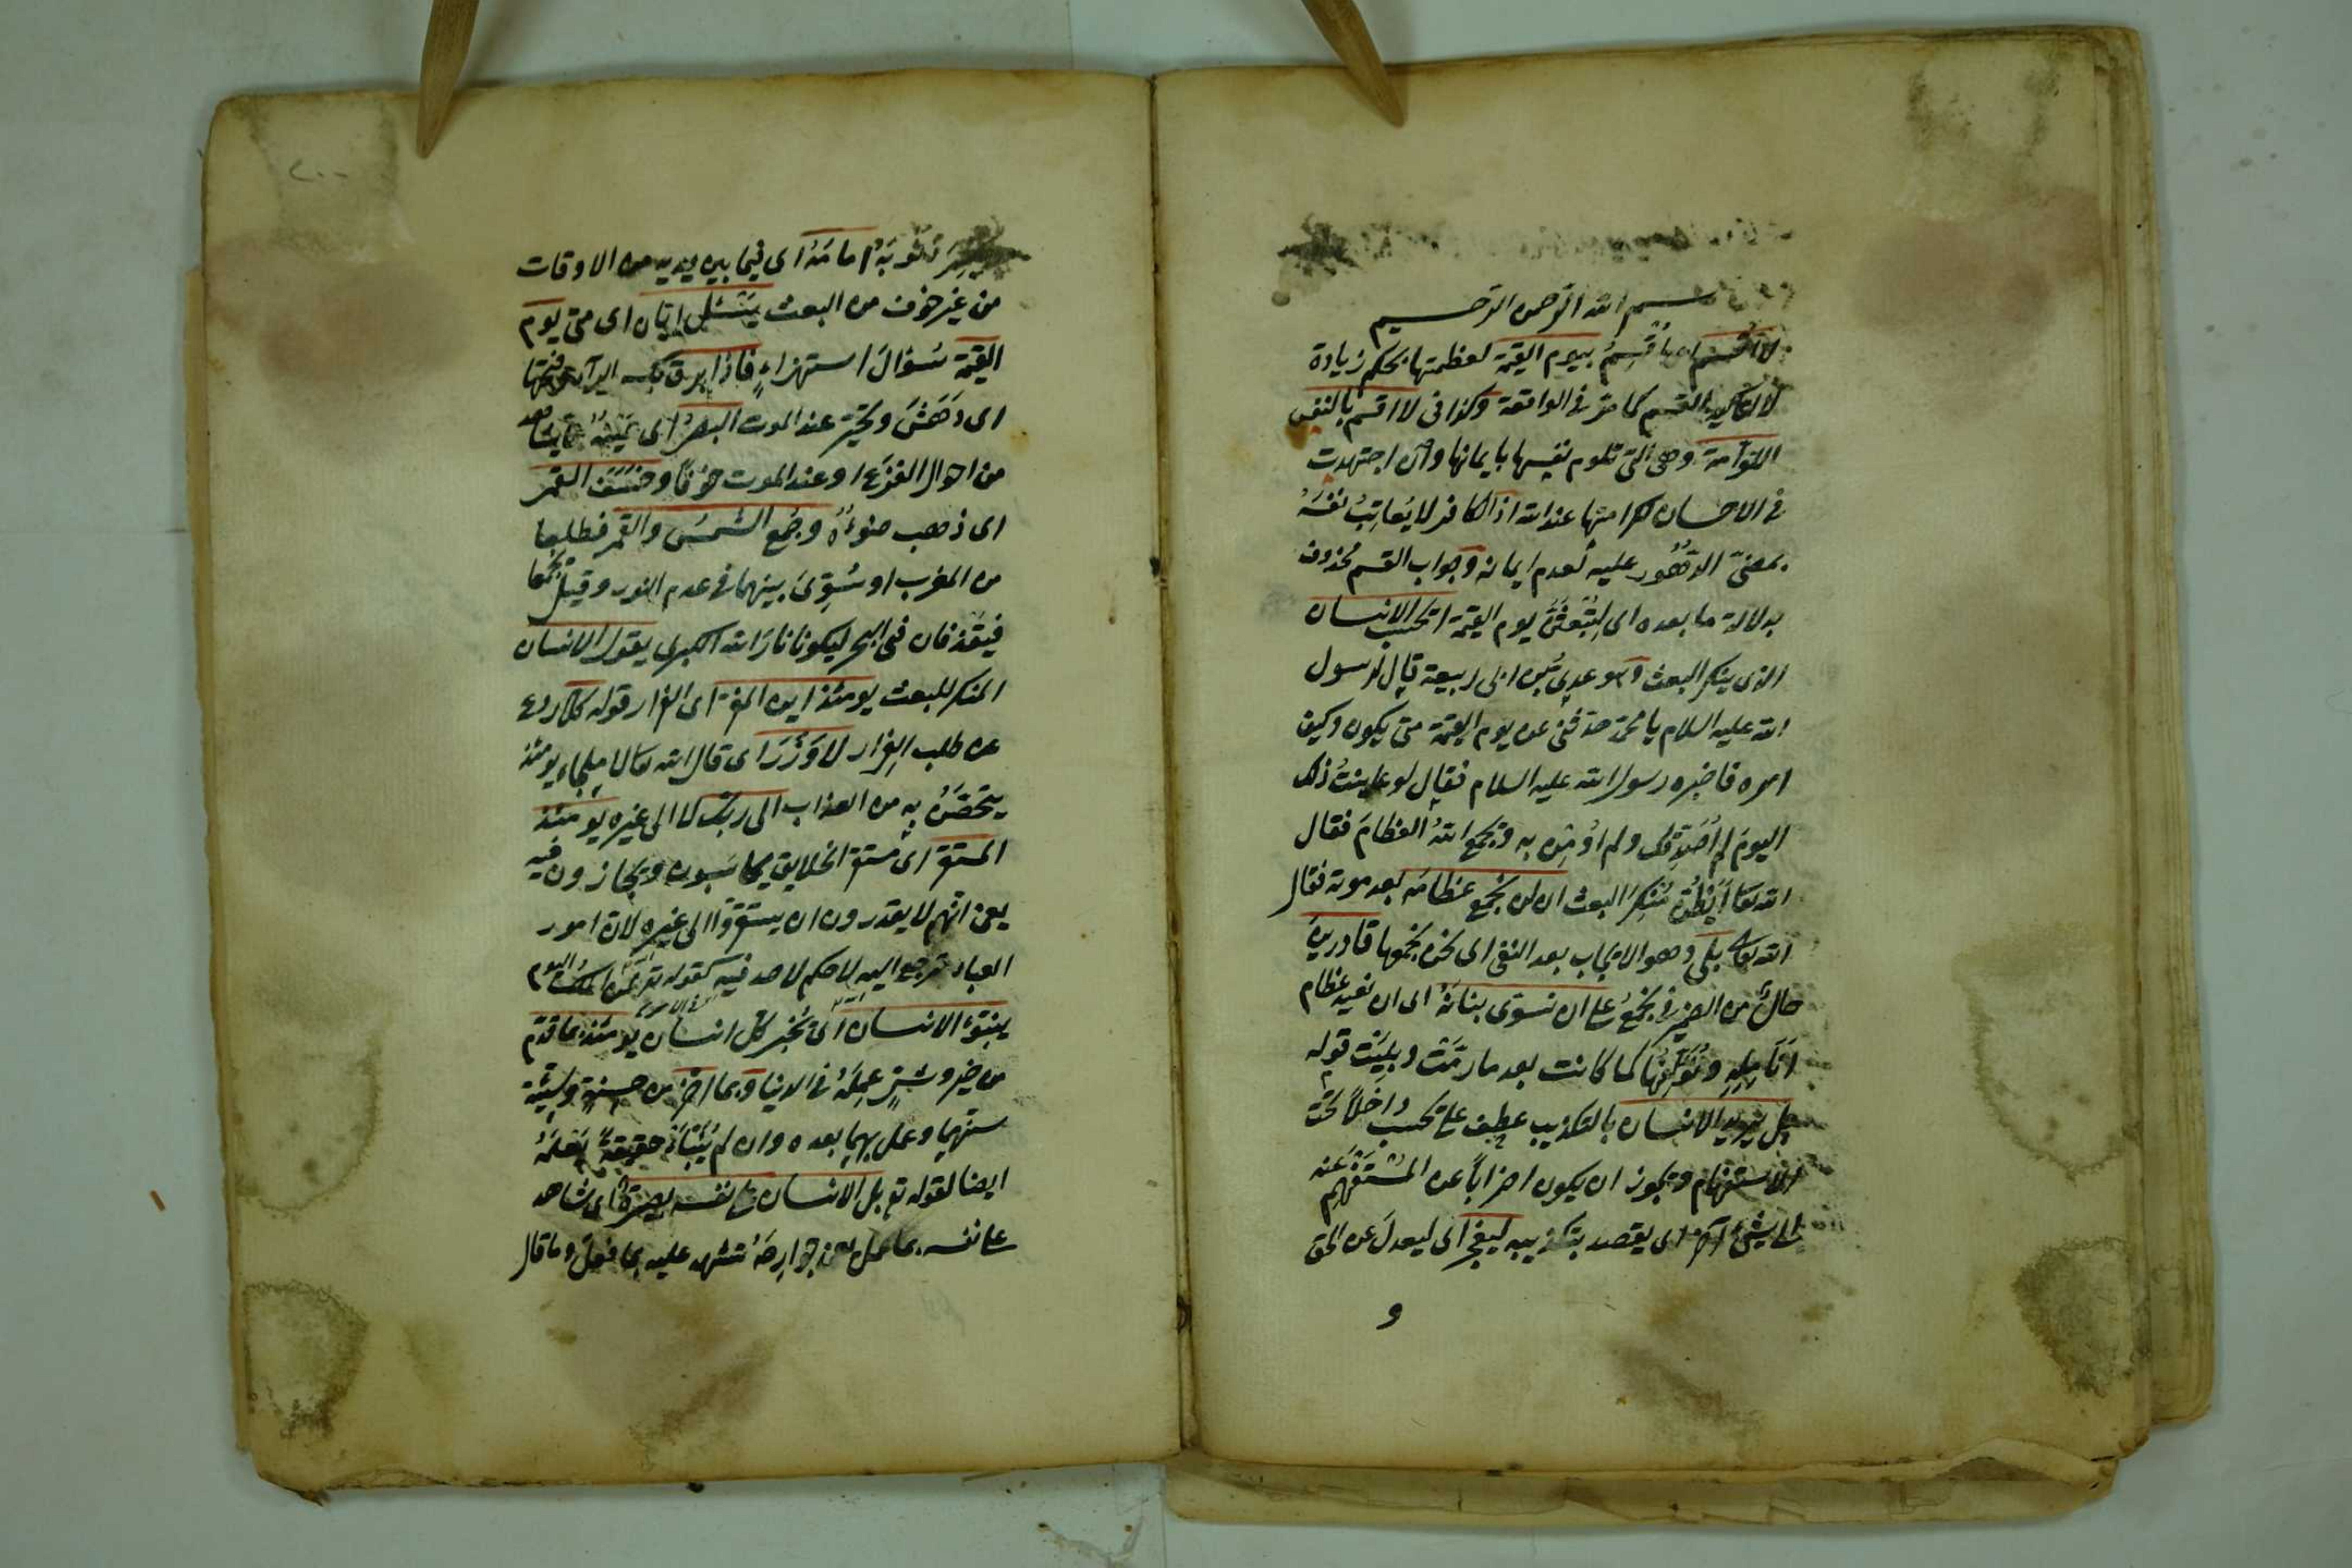 بسم الله الرحمن الرحيم
لا اقسم اى اُقْسِمُ بيوم القيمة لعظمتها بحكم زيادة
لا لتأكيد القسم كما مرّ فى الواقعة وكذا فى لا اقسم بالنفس
اللوّامة وهى التى تلوم نفسها بايمانها وان اجتهدت
فى الاحسان لكرامتها عند الله اذ الكافر لا يُعاتِبُ نفسَهُ
عليه لعدم ايمانه وجواب القسم محذوف
بدلالة ما بعده اى لتُبْعَثُنَّ يوم القيمة ايحسب الانسان
الذى ينكر البعث وهو عدىّ بن ابى ربيعة قال لرسول
الله عليه السلام يا محمّد حدّثنى عن يوم القيمة متى يكون وكيف
امره فاخبره رسول الله عليه السلام فقال لو عاينتُ ذلك
اليومَ لم اُصَدِّقْكَ ولم اُؤمِن به ويجمع اللهُ العظامَ فقال
الله تعا اَيَظُنّ مُنْكِرُ البعث ان لن نجمع عظامَه بعد موته فقال
الله تعالى بلى وهو الايجاب بعد النفى اى نحن نجمعها قادرين
حالٌ من الضمير فى نجمعُ على ان نسوّى بنانَهُ اى ان نعيد عظام
اَنَامِلِهِ ونُؤَلِّفُهَا كما كانت بعد ما رمّتْ وبلِيَت قوله
بل يريد الانسان بالتكذيب عطف على يحسب داخلاً تحت
الاستفهام ويجوز ان يكون اضراباً عن المُسْتَفْهَم عنه
الى شىءٍ آخر اى يقصد بتكذيبه ليفجر اى ليعدلَ عن الحق
و
٢٠٠
توبَتَهُ امامَهُ اى فيما بين يديه من الاوقات
من غير خوف من البعث يَسْئَلُ ايّان اى متى يوم
القيمة سُؤالَ استهزاءٍ فاذا برق بكسر الراء وفتحها
اى دَهَشَ وتحيّر عند الموت البصرُ اى عَيْنُهُ ممّا يشاهد
من احوال الفزع او عند الموت خوفاً وخسَفَ القمر
اى ذهب ضوءُهُ وجُمع الشمسُ والقمر فطلعا
من المغرب او سُوِّىَ بينهما فى عدم النور وقيل يُجْمَعا
فيقذفان فى البحر ليكونا نارَ الله الكبرى يقول الانسان
المنكر للبعث يومئذ اين المفرّ اى الفرار قوله كلّا ردع
عن طلب الفِرار لا وَزَرَ اى قال الله تعالى لا ملجاء يومئذ
يتحصّنُ به من العذاب الى ربّك لا الى غيره يومئذ
المستقرّ اى مُستقرّ الخلايق يحاسَبون ويجازون فيه
يعنى انّهم لا يقدرون ان يستقرّوا الى غيره لانّ امور
العباد ترجع اليه لا حكم لاحد فيه كقوله تع لمن الملك اليوم
ينبّؤ الانسان اى يُخبَر كلّ انسان يومئذ بما قدّم
من خير وشرّ عَمِلَهُ فى الدنيا وبما اخّر من حسنةٍ وسيّئة
سنّهما وعمل بهما بعده وان لم يُنَبّأ حقيقةً يَعْلَمُهُ
ايضا لقوله تع بل الانسان على نفسه بصيرة اى شاهد
على نفسه بما عمل يعنى جوارِحَهُ تشهد عليه بما فعلَ وما قال